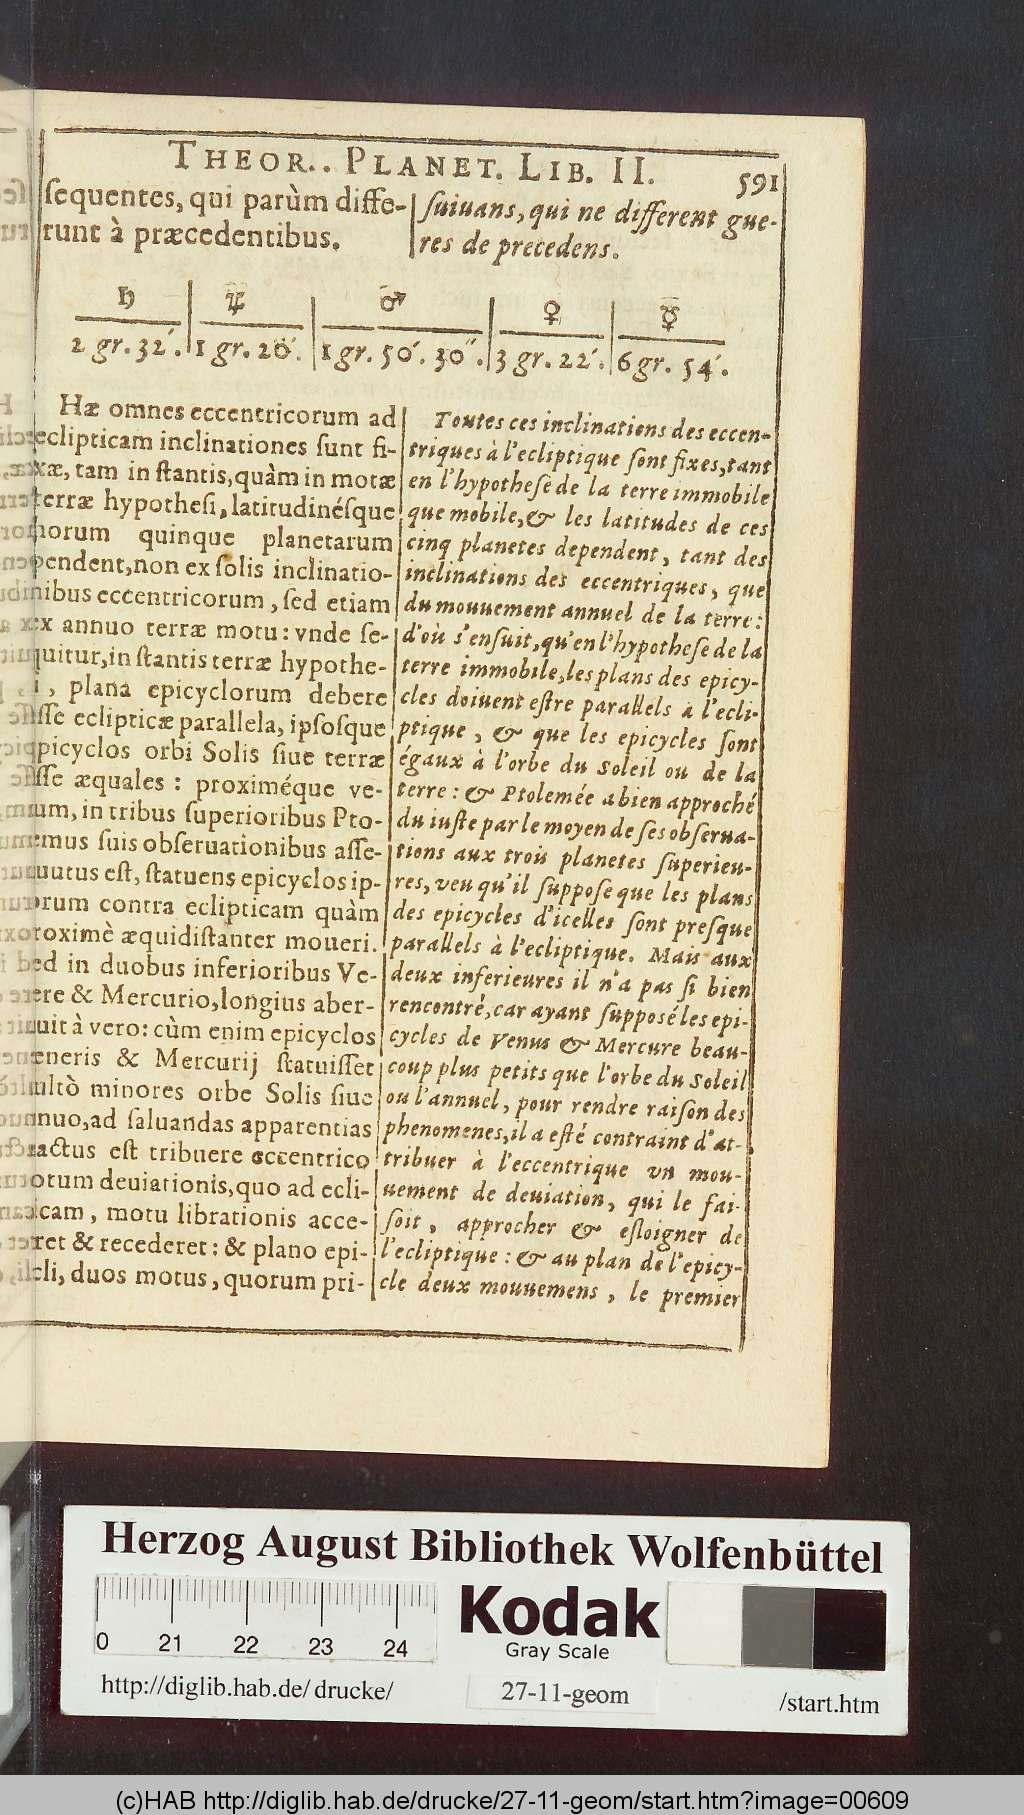 THEOR.. PLANET. LIB. II. 591
sequentes, qui parùm diffe-
runt à præcedentibus.
ſuiuans, qui ne different gue-
res de precedens.
♄ ♃ ♂ ♀ ☿
2 gr. 32´. 1 gr. 20´. 1 gr. 50´. 30´´. 3 gr. 22´. 6 gr. 54´.
Hæ omnes eccentricorum ad
eclipticam inclinationes ſunt fi-
xæ, tam in ſtantis, quàm in motæ
terræ hypotheſi, latitudinéſque
horum quinque planetarum
pendent, non ex ſolis inclinatio-
nibus eccentricorum, ſed etiam
ex annuo terræ motu: vnde ſe-
quitur, in ſtantis terræ hypothe-
ſi, plana epicyclorum debere
eſſe eclipticæ parallela, ipſoſque
epicyclos orbi Solis ſiue terræ
eſſe æquales: proximéque ve-
rum, in tribus ſuperioribus Pto-
lemæus ſuis obſeruationibus aſſe-
cutus est, ſtatuens epicyclos ip-
ſorum contra eclipticam quàm
proximè æquidiſtanter moueri.
Sed in duobus inferioribus Ve-
nere & Mercurio, longius aber-
rauit à vero: cùm enim epicyclos
Veneris & Mercurij ſtatuiſſet
multò minores orbe Solis ſiue
annuo, ad ſaluandas apparentias
coactus eſt tribuere eccentrico
motum deuiationis, quo ad ecli-
pticam, motu librationis acce-
deret & recederet: & plano epi-
cycli, duos motus, quorum pri-
Toutes ces inclinations des eccen-
triques à l'ecliptique ſont fixes, tant
en l'hypotheſe de la terre immobile
que mobile, & les latitudes de ces
cinq planetes dependent, tant des
inclinations des eccentriques, que
du mouuement annuel de la terre:
d'où s'enſuit, qu'en l'hypotheſe de la
terre immobile, les plans des epicy-
cles doiuent eſtre parallels à l'ecli-
ptique, & que les epicycles ſont
égaux à l'orbe du Soleil ou de la
terre: & Ptolemée a bien approché
du iuſte par le moyen de ſes obſerua-
tions aux trois planetes ſuperieu-
res, veu qu'il ſuppoſe que les plans
des epicycles d'icelles ſont preſque
parallels à l'ecliptique. Mais aux
deux inferieures il n'a pas ſi bien
rencontré, car ayant ſuppoſé les epi-
cycles de Venus & Mercure beau-
coup plus petits que l'orbe du Soleil
ou l'annuel, pour rendre raiſon des
phenomenes, il a eſté contraint d'at-
tribuer à l'eccentrique vn mou-
uement de deuiation, qui le fai-
ſoit, approcher & eſloigner de
l'ecliptique: & au plan de l'epicy-
cle deux mouuemens, le premier
Herzog August Bibliothek Wolfenbüttel
0 21 22 23 24
Kodak
Gray Scale
http://diglib.hab.de/ drucke/ 27-11-geom /start.htm
(c)HAB http://diglib.hab.de/drucke/27-11-geom/start.htm?image=00609